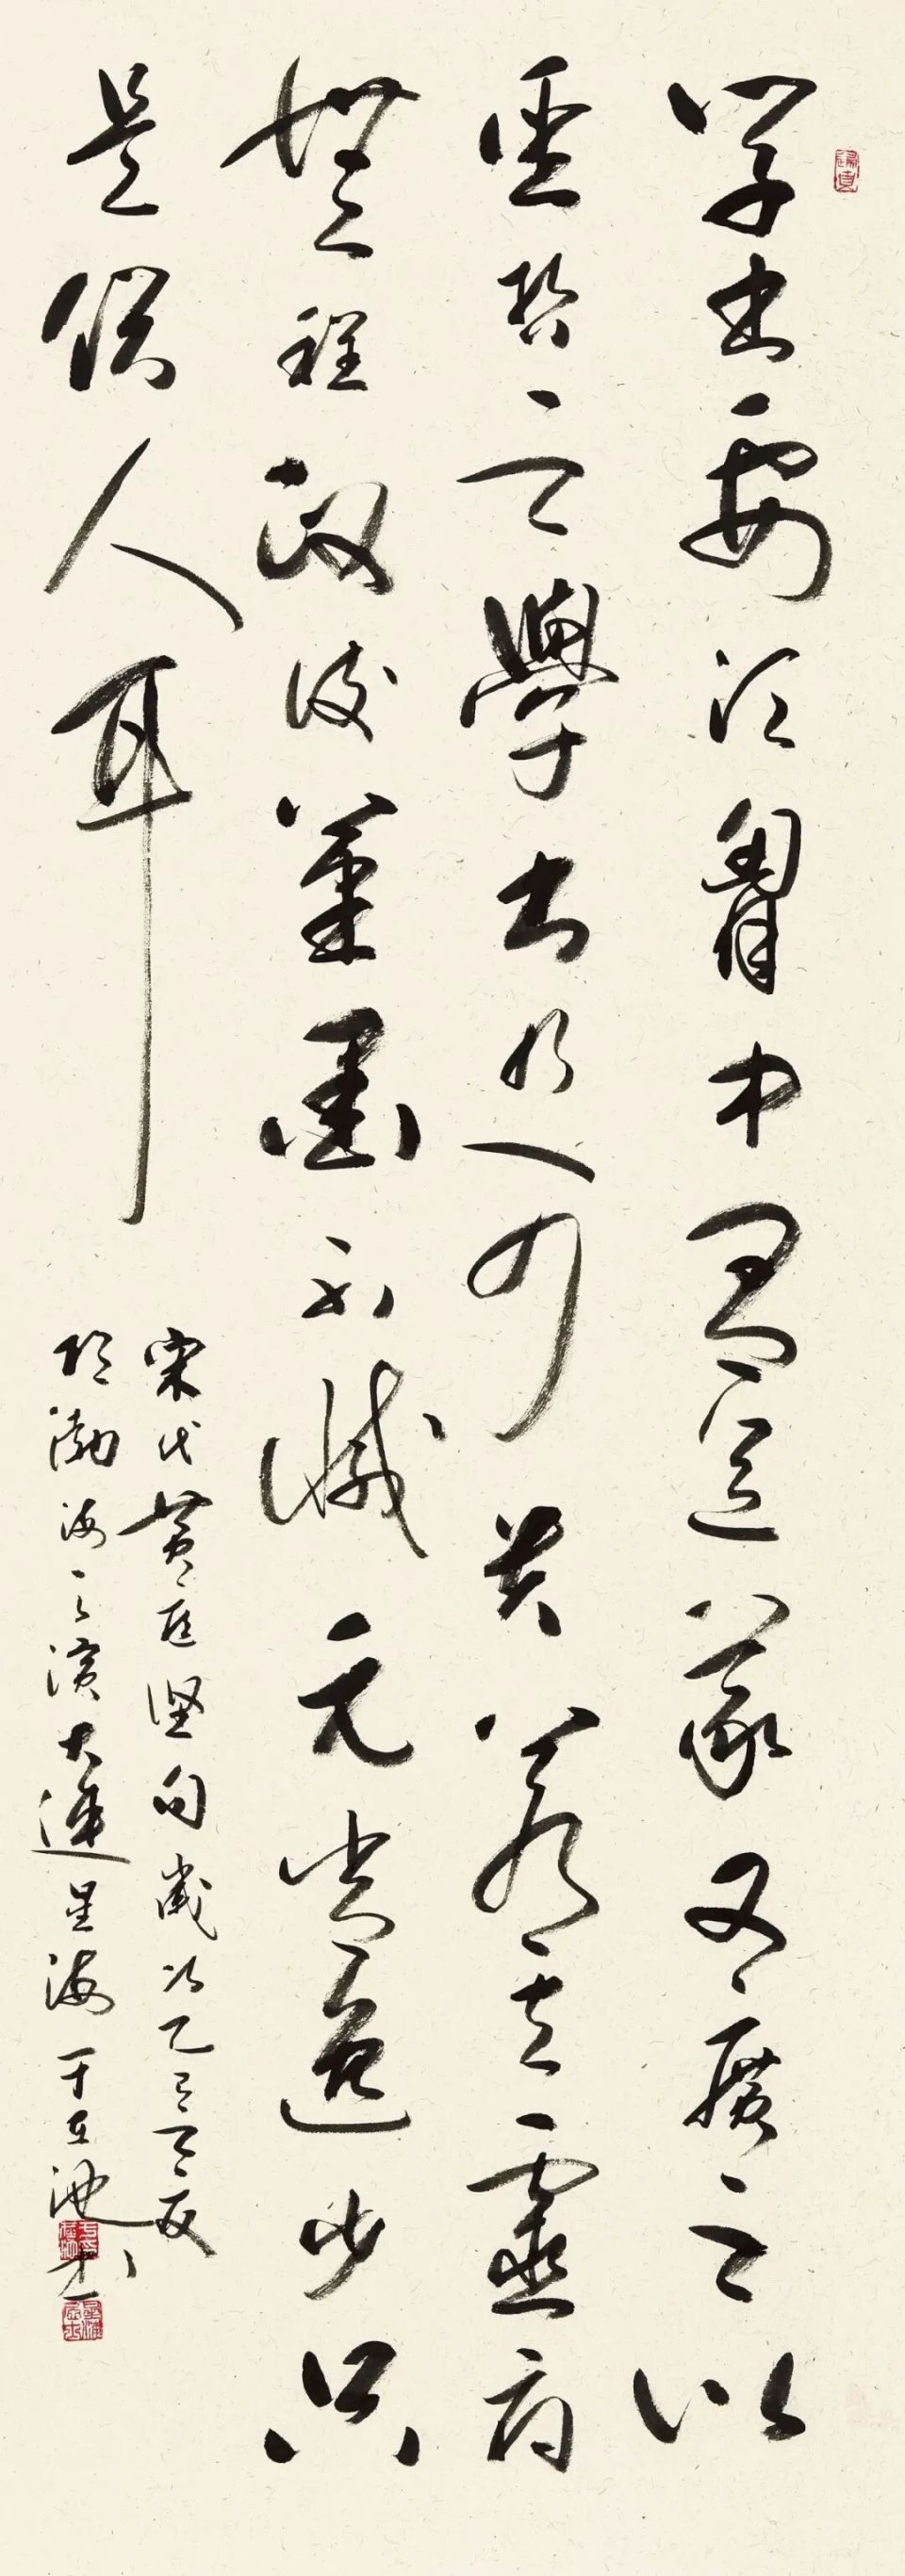 学书要须胷中有道義又廣之以
聖哲之學书乃可貴若其靈府
無程政使筆墨不減元常逸少只
是俗人耳
宋代黄庭堅句歲次乙巳之夏
於渤海之濱大連星海于池书